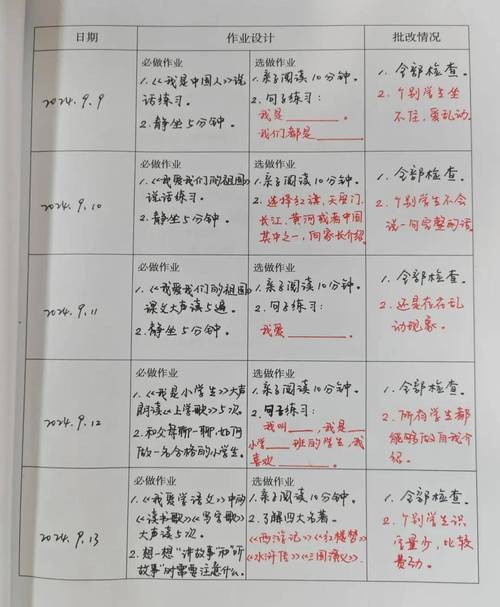 日期 作业设计 批改情况
2024.9.9
必做作业
1.《我是中国人》说
话练习。
2.静坐5分钟。
选做作业
1.亲子阅读10分钟。
2.句子练习：
我是________。
我们都是________。
1.全部检查。
2.个别学生坐
不住，爱乱动。
2024.9.10
必做作业
1.《我爱我们的祖国》
说话练习。
2.静坐5分钟。
选做作业
1.亲子阅读10分钟。
2.选择红旗，天安门，
长江、黄河或者中国
其中之一，向家长介绍。
1.全部检查。
2.个别学生不会
说一句完整的话。
2024.9.11
必做作业
1.《我爱我们的祖国》
课文大声读5遍。
2.静坐5分钟。
选做作业
1.亲子阅读10分钟。
2.句子练习：
我爱________。
1.全部检查。
2.还是存在乱
动现象。
2024.9.12
必做作业
1.《我是小学生》大声
朗读《上学歌》5次。
2.和父母聊一聊，如何
做一名合格的小学生。
选做作业
1.亲子阅读10分钟。
2.句子练习：
我叫____，我是____
小学____班的学生，我
喜欢________。
1.全部检查。
2.所有学生都
能够做自我介
绍。
2024.9.13
必做作业
1.《我爱学语文》中的
《读书歌》《写字歌》
大声读5次。
2.想一想"讲故事"和"听
故事"时需要注意什么。
选做作业
1.亲子阅读10分钟。
2.了解四大名著。
《西游记》《红楼梦》
《水浒传》《三国演义》。
1.全部检查。
2.个别学生识
字量少，比较
费劲。